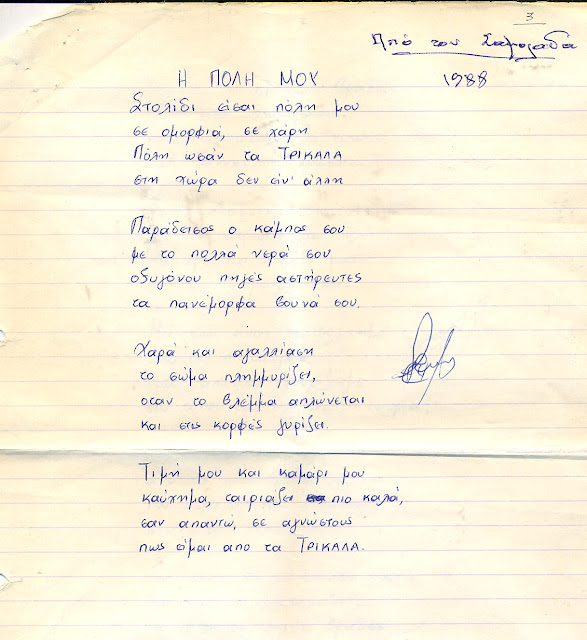 3
Από τον Σαμολαδα
1988
Η ΠΟΛΗ ΜΟΥ
Στολίδι είσαι πόλη μου
σε ομορφιά, σε χάρη
Πόλη ωσάν τα ΤΡΙΚΑΛΑ
στη χώρα δεν είν' άλλη
Παράδεισος ο κάμπος σου
με το πολλά νερά σου
οξυγόνου πηγές αστήρευτες
τα πανέμορφα βουνά σου.
Χαρά και αγαλλίαση
το σώμα πλημμυρίζει,
οταν το βλέμμα απλώνεται
και στις κορφές γυρίζει.
Τιμή μου και καμάρι μου
καύχημα, ταιριαζει πιο καλά,
σαν απαντώ, σε αγνώστους
πως είμαι απο τα ΤΡΙΚΑΛΑ.